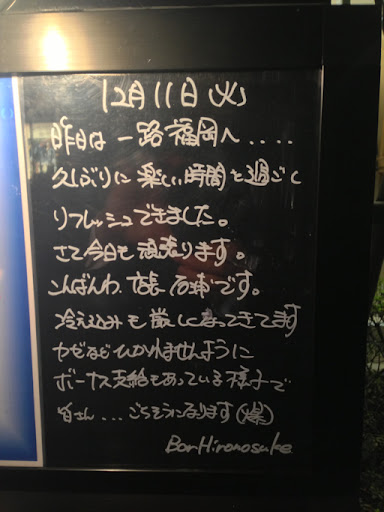 12月11日(火)
昨日は一路福岡へ....
久しぶりに楽しい時間を過ごし
リフレッシュできました。
さて今日も頑張ります。
こんばんわ、店長 石浦です。
冷え込みも厳しくなってきてます
カゼなどひかれませんように
ボーナス支給もあっている様子で
皆さん...ごちそうになります(爆)
Bar Hironosuke